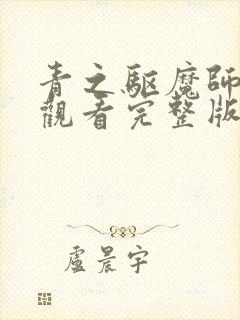 青之驅魔師
觀看完整版
盧晨宇